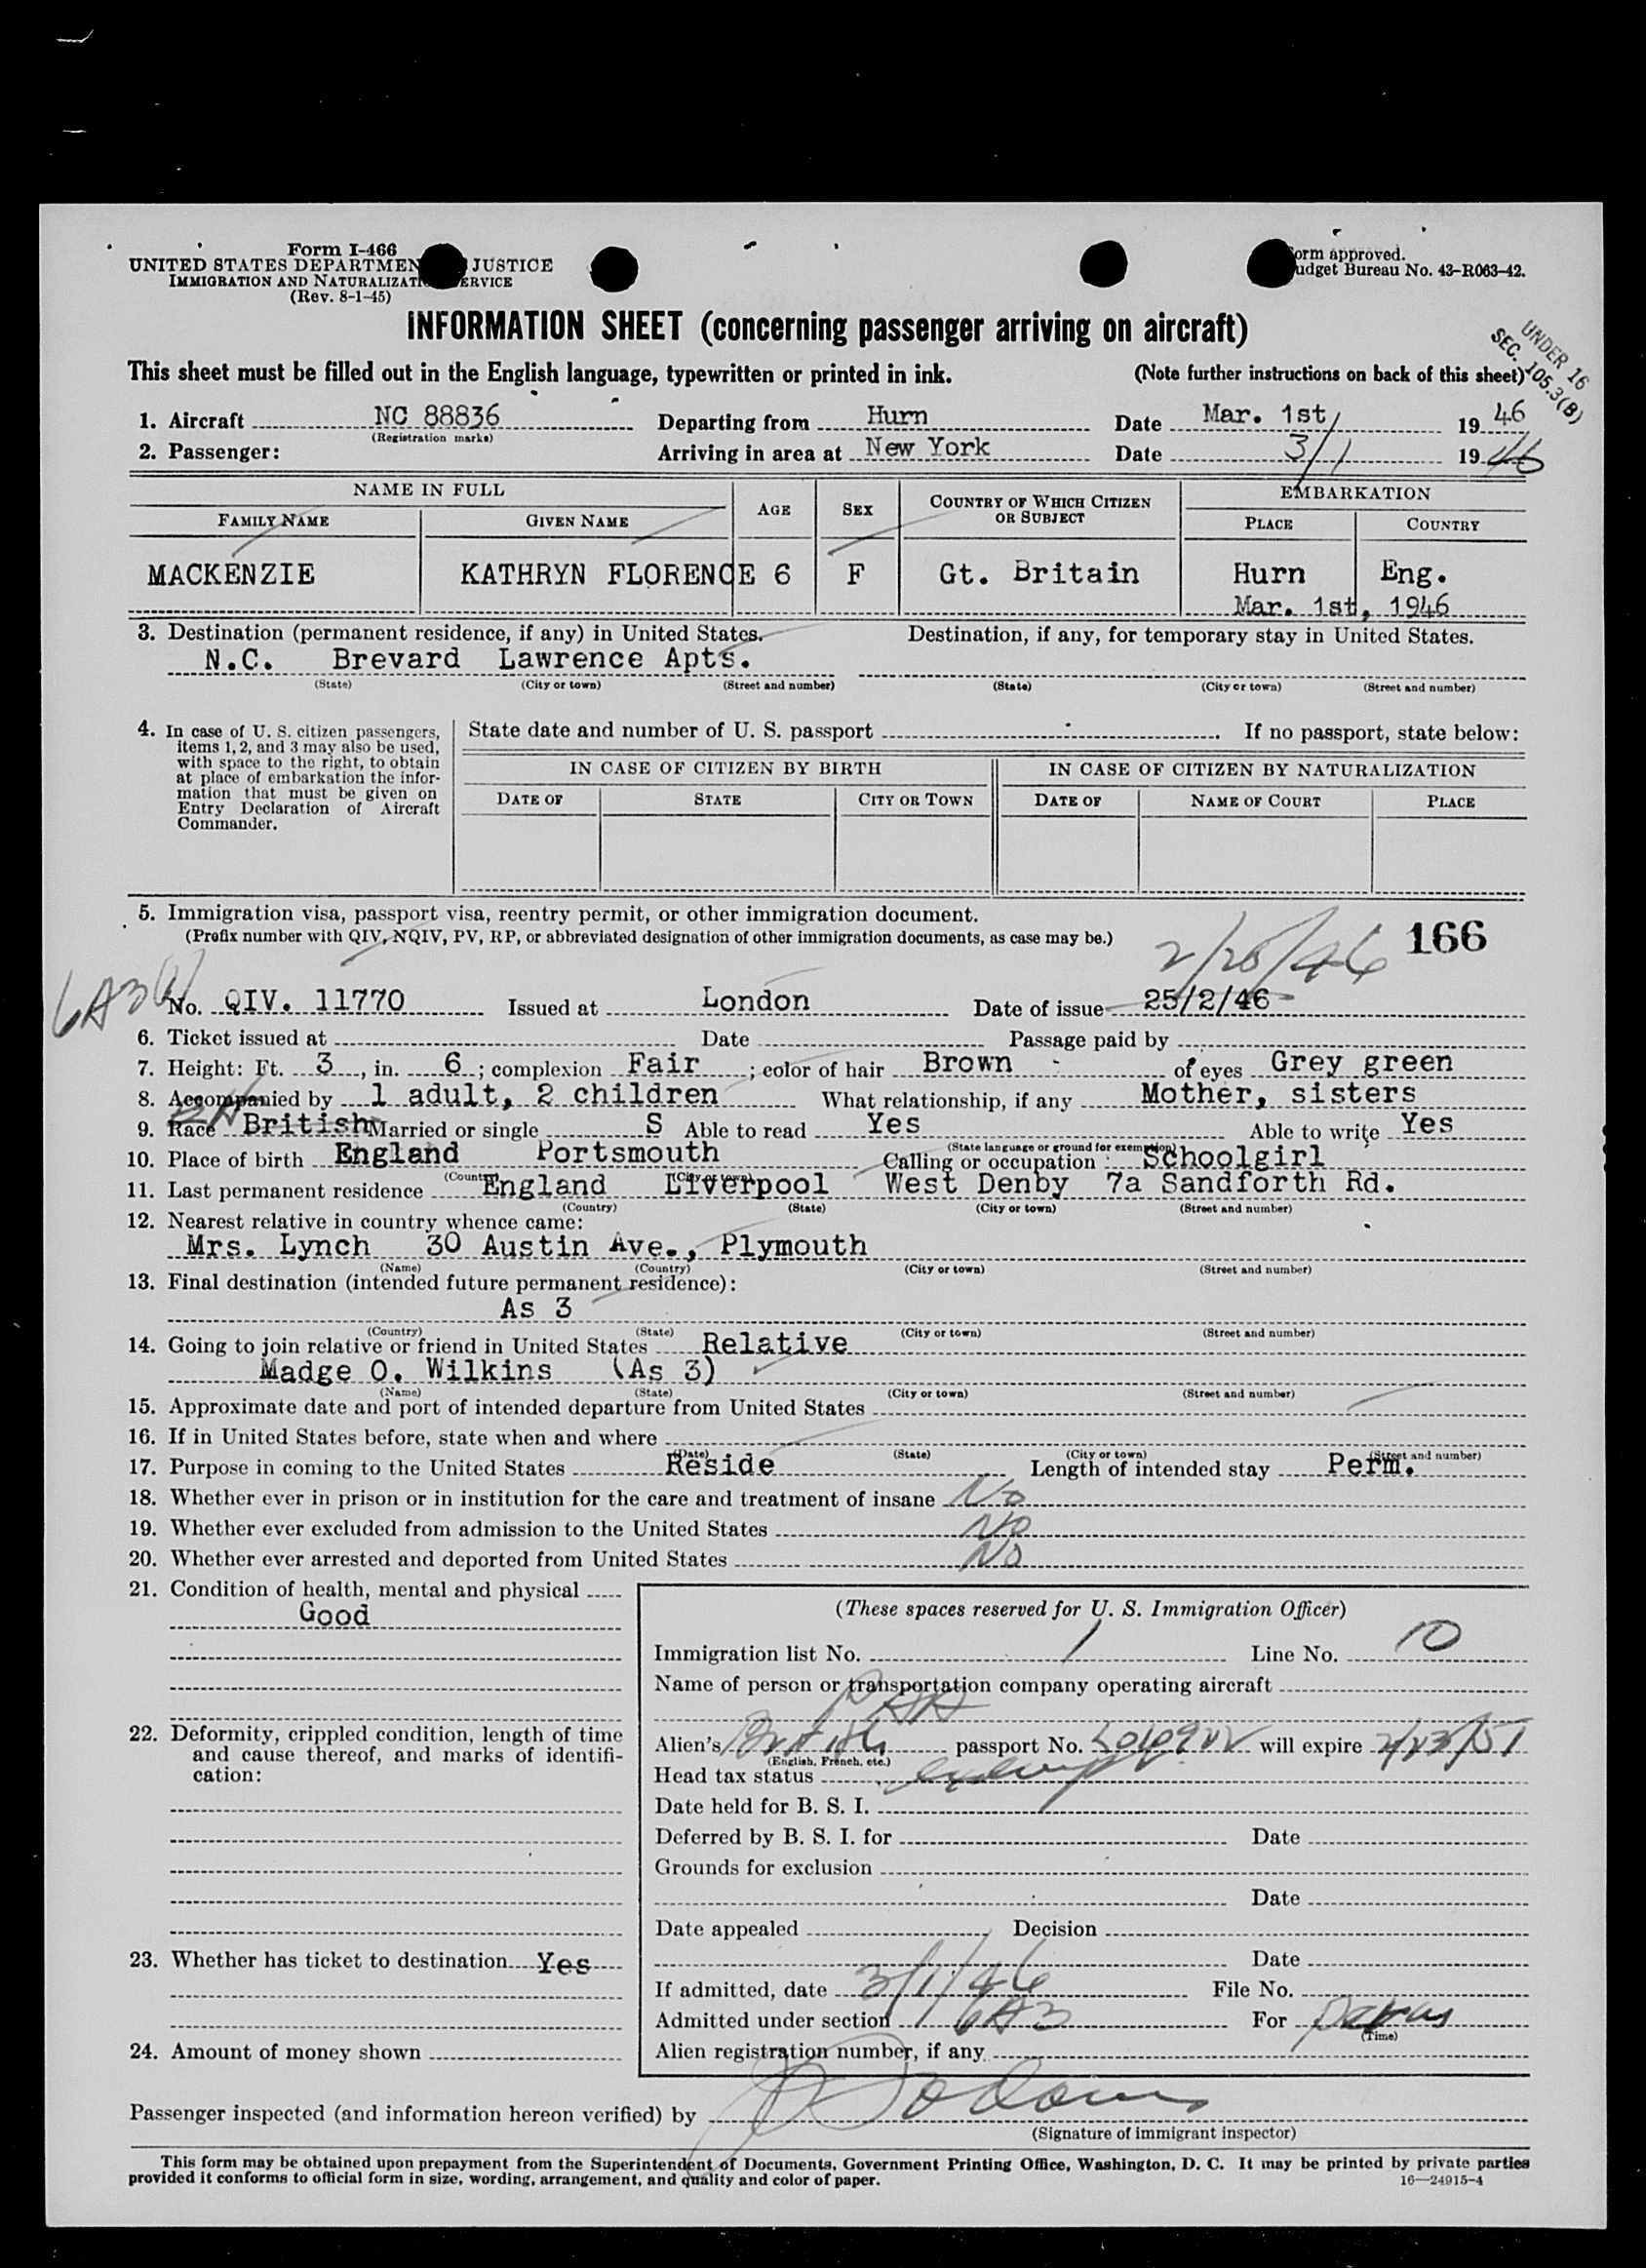 Form I-466
UNITED STATES DEPARTMEN JUSTICE
IMMIGRATION AND NATURALIZATI ERVICE
(Rev. 8-1-45)
orm approved.
udget Bureau No. 43-R063-42.
INFORMATION SHEET (concerning passenger arriving on aircraft)
UNDER 16
SEC. 105.3(B)
This sheet must be filled out in the English language, typewritten or printed in ink. (Note further instructions on back of this sheet)
1. Aircraft NC 88836 Departing from Hurn Date Mar. 1st, 19 46
(Registration marks)
2. Passenger: Arriving in area at New York Date 3/1 19 46
NAME IN FULL AGE SEX COUNTRY OF WHICH CITIZEN OR SUBJECT EMBARKATION
FAMILY NAME GIVEN NAME PLACE COUNTRY
MACKENZIE KATHRYN FLORENCE 6 F Gt. Britain Hurn Eng.
Mar. 1st, 1946
3. Destination (permanent residence, if any) in United States. Destination, if any, for temporary stay in United States.
N.C. Brevard Lawrence Apts.
(State) (City or town) (Street and number) (State) (City or town) (Street and number)
4. In case of U. S. citizen passengers, items 1, 2, and 3 may also be used, with space to the right, to obtain at place of embarkation the information that must be given on Entry Declaration of Aircraft Commander.
State date and number of U. S. passport . If no passport, state below:
IN CASE OF CITIZEN BY BIRTH IN CASE OF CITIZEN BY NATURALIZATION
DATE OF STATE CITY OR TOWN DATE OF NAME OF COURT PLACE
5. Immigration visa, passport visa, reentry permit, or other immigration document.
(Prefix number with QIV, NQIV, PV, RP, or abbreviated designation of other immigration documents, as case may be.)
2/25/46 166
No. QIV. 11770 Issued at London Date of issue 25/2/46
6. Ticket issued at Date Passage paid by
7. Height: Ft. 3, in. 6; complexion Fair; color of hair Brown of eyes Grey green
8. Accompanied by 1 adult, 2 children What relationship, if any Mother, sisters
9. Race British Married or single S Able to read Yes Able to write Yes
(State language or ground for exemption)
10. Place of birth England Portsmouth Calling or occupation Schoolgirl
(Country) (City or town)
11. Last permanent residence England Liverpool West Denby 7a Sandforth Rd.
(Country) (State) (City or town) (Street and number)
12. Nearest relative in country whence came:
Mrs. Lynch 30 Austin Ave., Plymouth
(Name) (Country) (City or town) (Street and number)
13. Final destination (intended future permanent residence):
As 3
(Country) (State) (City or town) (Street and number)
14. Going to join relative or friend in United States Relative
Madge O. Wilkins (As 3)
(Name) (State) (City or town) (Street and number)
15. Approximate date and port of intended departure from United States
16. If in United States before, state when and where
(Date) (State) (City or town) (Street and number)
17. Purpose in coming to the United States Reside Length of intended stay Perm.
18. Whether ever in prison or in institution for the care and treatment of insane No
19. Whether ever excluded from admission to the United States No
20. Whether ever arrested and deported from United States No
21. Condition of health, mental and physical
Good
22. Deformity, crippled condition, length of time and cause thereof, and marks of identification:
23. Whether has ticket to destination Yes
24. Amount of money shown
(These spaces reserved for U. S. Immigration Officer)
Immigration list No. 1 Line No. 10
Name of person or transportation company operating aircraft
PAA
Alien's British passport No. will expire 2/23/51
(English, French, etc.)
Head tax status
Date held for B. S. I.
Deferred by B. S. I. for Date
Grounds for exclusion
Date
Date appealed Decision
Date
If admitted, date 3/1/46 File No.
Admitted under section 6A3 For
(Time)
Alien registration number, if any
Passenger inspected (and information hereon verified) by
(Signature of immigrant inspector)
This form may be obtained upon prepayment from the Superintendent of Documents, Government Printing Office, Washington, D. C. It may be printed by private parties
provided it conforms to official form in size, wording, arrangement, and quality and color of paper. 16—24915-4